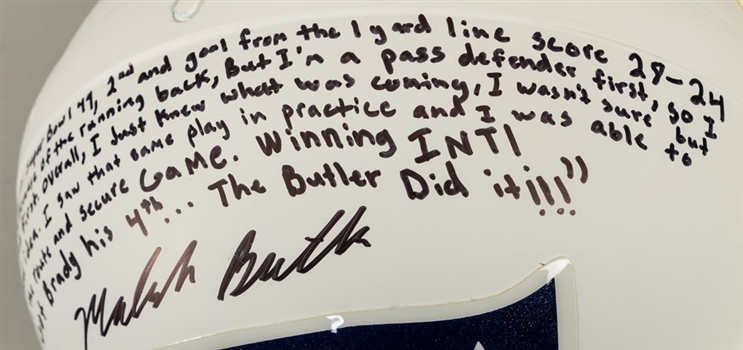 Super Bowl 49, 2nd and goal from the 1 yard line score 28-24
of the running back, But I'm a pass defender first, so I
first. Overall, I Just knew what was coming, I wasn't sure but
idea. I saw that same play in practice and I was able to
route and secure GAME. Winning INT!
Brady his 4th... The Butler Did it!!!"
Malcolm Butler